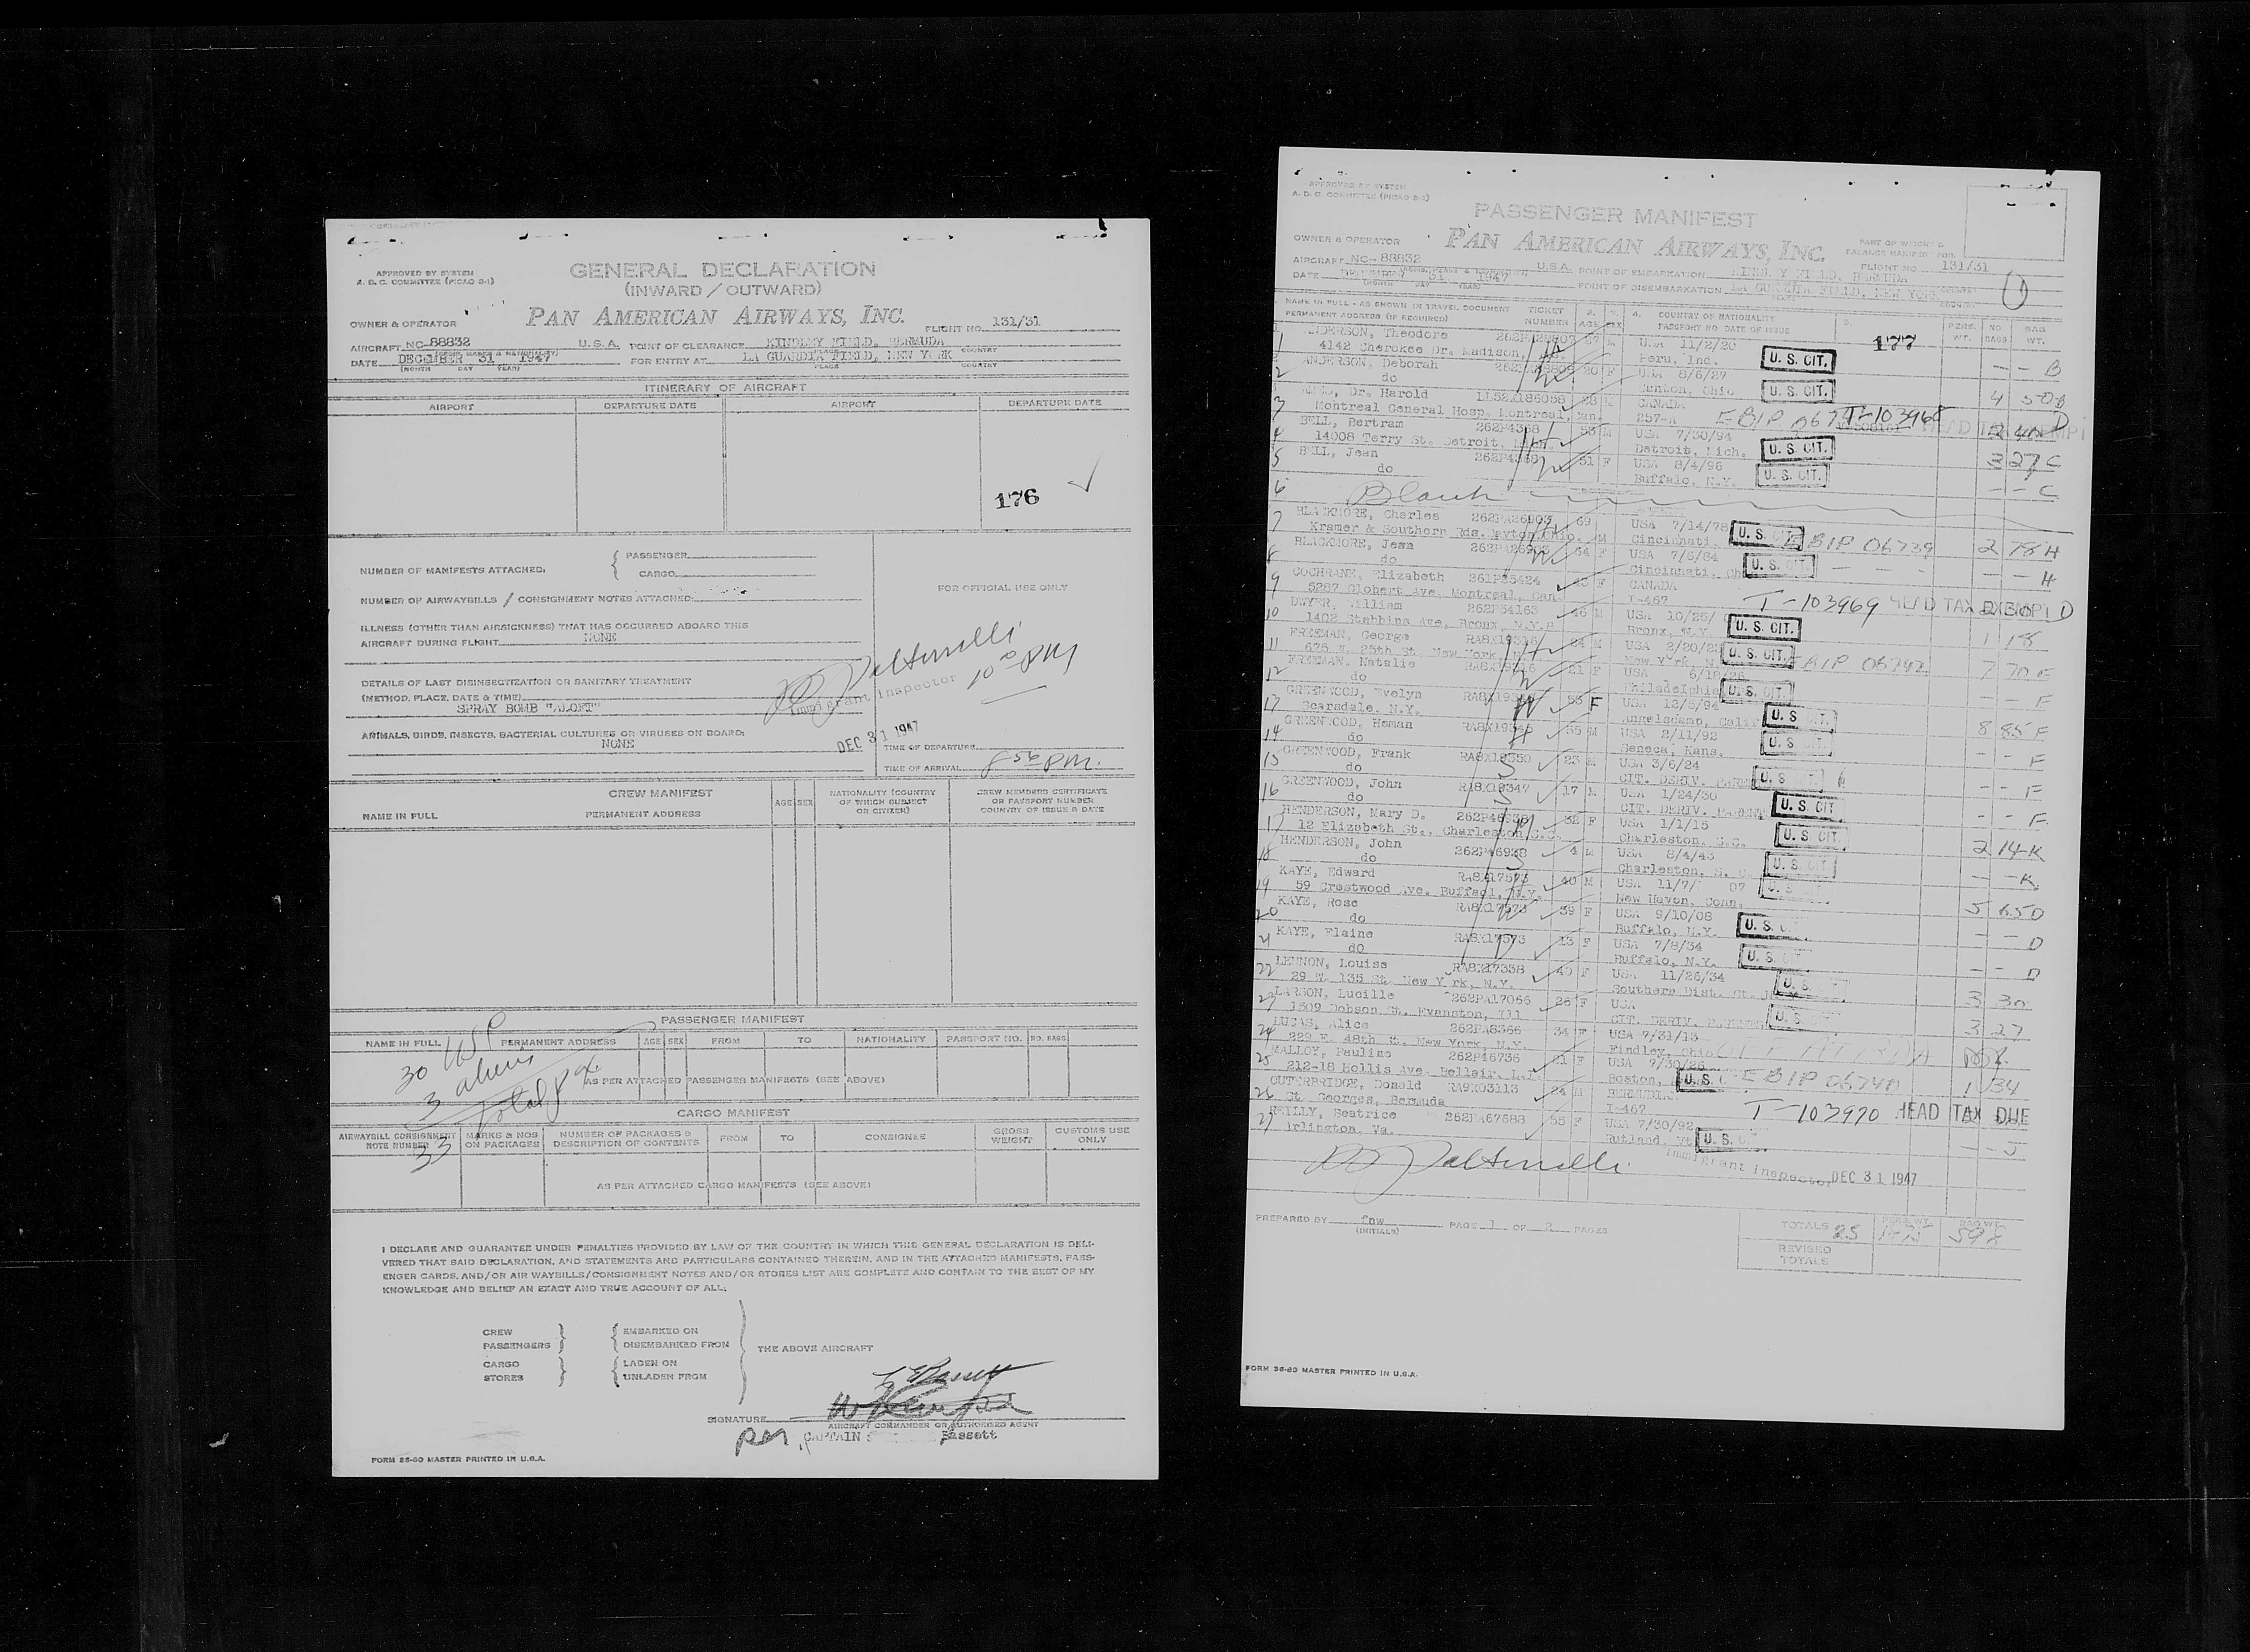 APPROVED BY SYSTEM
A. D. C. COMMITTEE (PICAO 2-1)
GENERAL DECLARATION
(INWARD / OUTWARD)
OWNER & OPERATOR PAN AMERICAN AIRWAYS, INC. FLIGHT NO. 131/31
AIRCRAFT NC-88832 U.S.A. POINT OF CLEARANCE KINDLEY FIELD, BERMUDA
DATE DECEMBER 31 1947 FOR ENTRY AT LA GUARDIA FIELD, NEW YORK
(MONTH DAY YEAR) PLACE COUNTRY
ITINERARY OF AIRCRAFT
AIRPORT DEPARTURE DATE AIRPORT DEPARTURE DATE
176
NUMBER OF MANIFESTS ATTACHED: PASSENGER
CARGO
FOR OFFICIAL USE ONLY
NUMBER OF AIRWAYBILLS / CONSIGNMENT NOTES ATTACHED:
ILLNESS (OTHER THAN AIRSICKNESS) THAT HAS OCCURRED ABOARD THIS
AIRCRAFT DURING FLIGHT NONE
DETAILS OF LAST DISINSECTIZATION OR SANITARY TREATMENT
(METHOD, PLACE, DATE & TIME)
Immigrant Inspector
SPRAY BOMB "ALOFT"
ANIMALS, BIRDS, INSECTS, BACTERIAL CULTURES OR VIRUSES ON BOARD:
NONE
DEC 31 1947
TIME OF DEPARTURE
TIME OF ARRIVAL 8 56 PM.
CREW MANIFEST AGE SEX NATIONALITY (COUNTRY OF WHICH SUBJECT OR CITIZEN) CREW MEMBERS CERTIFICATE OR PASSPORT NUMBER COUNTRY OF ISSUE & DATE
NAME IN FULL PERMANENT ADDRESS
PASSENGER MANIFEST
NAME IN FULL PERMANENT ADDRESS AGE SEX FROM TO NATIONALITY PASSPORT NO. NO. BAGS
30
3 aliens
total
33
AS PER ATTACHED PASSENGER MANIFESTS (SEE ABOVE)
CARGO MANIFEST
AIRWAYBILL CONSIGNMENT NOTE NUMBER MARKS & NOS ON PACKAGES NUMBER OF PACKAGES & DESCRIPTION OF CONTENTS FROM TO CONSIGNEE GROSS WEIGHT CUSTOMS USE ONLY
AS PER ATTACHED CARGO MANIFESTS (SEE ABOVE)
I DECLARE AND GUARANTEE UNDER PENALTIES PROVIDED BY LAW OF THE COUNTRY IN WHICH THIS GENERAL DECLARATION IS DELI-
VERED THAT SAID DECLARATION, AND STATEMENTS AND PARTICULARS CONTAINED THEREIN, AND IN THE ATTACHED MANIFESTS, PASS-
ENGER CARDS, AND/OR AIR WAYBILLS/CONSIGNMENT NOTES AND/OR STORES LIST ARE COMPLETE AND CONTAIN TO THE BEST OF MY
KNOWLEDGE AND BELIEF AN EXACT AND TRUE ACCOUNT OF ALL:
CREW EMBARKED ON
PASSENGERS DISEMBARKED FROM
THE ABOVE AIRCRAFT
CARGO LADEN ON
STORES UNLADEN FROM
SIGNATURE
AIRCRAFT COMMANDER OR AUTHORISED AGENT
CAPTAIN Bassett
FORM 36-80 MASTER PRINTED IN U.S.A.
APPROVED BY SYSTEM
A. D. C. COMMITTEE (PICAO 2-1)
PASSENGER MANIFEST
OWNER & OPERATOR PAN AMERICAN AIRWAYS, INC. PART OF WEIGHT & BALANCE MANIFEST FOR:
AIRCRAFT NC-88832 U.S.A. POINT OF EMBARKATION KINDLEY FIELD, BERMUDA FLIGHT NO. 131/31
DATE DECEMBER 31 1947 POINT OF DISEMBARKATION LA GUARDIA FIELD, NEW YORK
(MONTH DAY YEAR) PLACE COUNTRY
NAME IN FULL - AS SHOWN IN TRAVEL DOCUMENT TICKET NUMBER 2. AGE 3. SEX 4. COUNTRY OF NATIONALITY 5. PERS. WT. NO. BAGS BAG WT.
PERMANENT ADDRESS (IF REQUIRED) PASSPORT NO DATE OF ISSUE
177
1 ANDERSON, Theodore M USA 11/2/20
4142 Cherokee Dr. Madison, Peru, Ind. U.S. CIT. B
2 ANDERSON, Deborah 20 F USA 8/6/27
do Canton, Ohio U.S. CIT. 4 50 B
3 Dr. Harold LL52X186058 CANADA
Montreal General Hosp. Montreal, Can. 257-A T-103968 D
4 BELL, Bertram 262P4368 53 M USA 7/30/94
14008 Terry St. Detroit, Mich. Detroit, Mich. U.S. CIT. 3 27 C
5 BELL, Jean 262P4368 51 F USA 8/4/96
do Buffalo, N.Y. U.S. CIT. C
6 Blank
7 BLACKMORE, Charles 262PA26903 69 M USA 7/14/78
Kramer & Southern Rds. Dayton, Ohio. Cincinnati, U.S. CIT. BIP 06739 2 78 H
8 BLACKMORE, Jean 262PA26903 F USA 7/6/84
do Cincinnati, U.S. CIT. H
9 COCHRANE, Elizabeth 261P25424 43 F CANADA
5287 Globert Ave. Montreal, Can. I-467 T-103969 HEAD TAX EXEMPT D
10 DWYER, William 262P54163 46 M USA 10/25/
1402 Stebbins Ave, Bronx, N.Y. Bronx, N.Y. U.S. CIT. 1 18
11 FREEMAN, George RA8X19316 24 M USA 2/20/23
675 W. 25th St. New York, N. New York, N. U.S. CIT. 7 70 F
12 FREEMAN, Natalie RA8X19316 21 F USA 6/18/26
do Philadelphia U.S. CIT. F
13 GREENWOOD, Evelyn 53 F USA 12/5/94
Scarsdale, N.Y. Angelscamp, Calif U.S. CIT. 8 85 F
14 GREENWOOD, Homan 55 M USA 2/11/92
do Seneca, Kans. U.S. CIT. F
15 GREENWOOD, Frank RA8X19350 23 M USA 3/6/24
do CIT. DERIV. PARENT U.S. F
16 GREENWOOD, John RA8X19347 17 M USA 1/24/30
do CIT. DERIV. PARENT U.S. CIT F
17 HENDERSON, Mary D. 262P46938 32 F USA 1/1/15
12 Elizabeth St., Charleston S.C. Charleston, S.C. U.S. CIT 2 14 K
18 HENDERSON, John 262P46938 4 M USA 8/4/43
do Charleston, S. C. U.S. CIT. K
19 KAYE, Edward RA8X17573 40 M USA 11/7/ 07
59 Crestwood Ave. Buffaol, N.Y. New Haven, Conn. U.S. 5 65 D
20 KAYE, Rose RA8X17573 39 F USA 9/10/08
do Buffalo, N.Y. U.S. D
21 KAYE, Elaine RA8X17573 13 F USA 7/8/34
do Buffalo, N.Y. U.S. D
22 LENNON, Louise RA8X17338 F USA 11/26/34
29 W. 135 St. New York, N.Y. Southern Dist. Ct. U.S. 3 30
23 LARSON, Lucille 262PA17066 26 F USA
1509 Dobson St. Evanston, Ill CIT. DERIV. PARENT U.S. 3 27
24 LUCAS, Alice 262PA8366 34 F USA 7/31/13
229 E. 48th St. New York, N.Y. Findley, Ohio
25 MALLOY, Pauline 262P46736 21 F USA 7/30/26
212-18 Hollis Ave. Bellair, L.I. Boston, U.S. BIP 06740 1 34
26 OUTERBRIDGE, Donald RA9X03113 24 M BERMUDI
St. Georges, Bermuda I-467 T-103970 HEAD TAX DUE
27 REILLY, Beatrice 262PA67688 55 F USA 7/30/92
Arlington, Va. Rutland, Vt U.S. J
Immigrant Inspector DEC 31 1947
PREPARED BY fnw PAGE 1 OF 2 PAGES
(INITIALS)
TOTALS 25 PERS. WT. BAG WT. 598
REVISED TOTALS
FORM 36-80 MASTER PRINTED IN U.S.A.